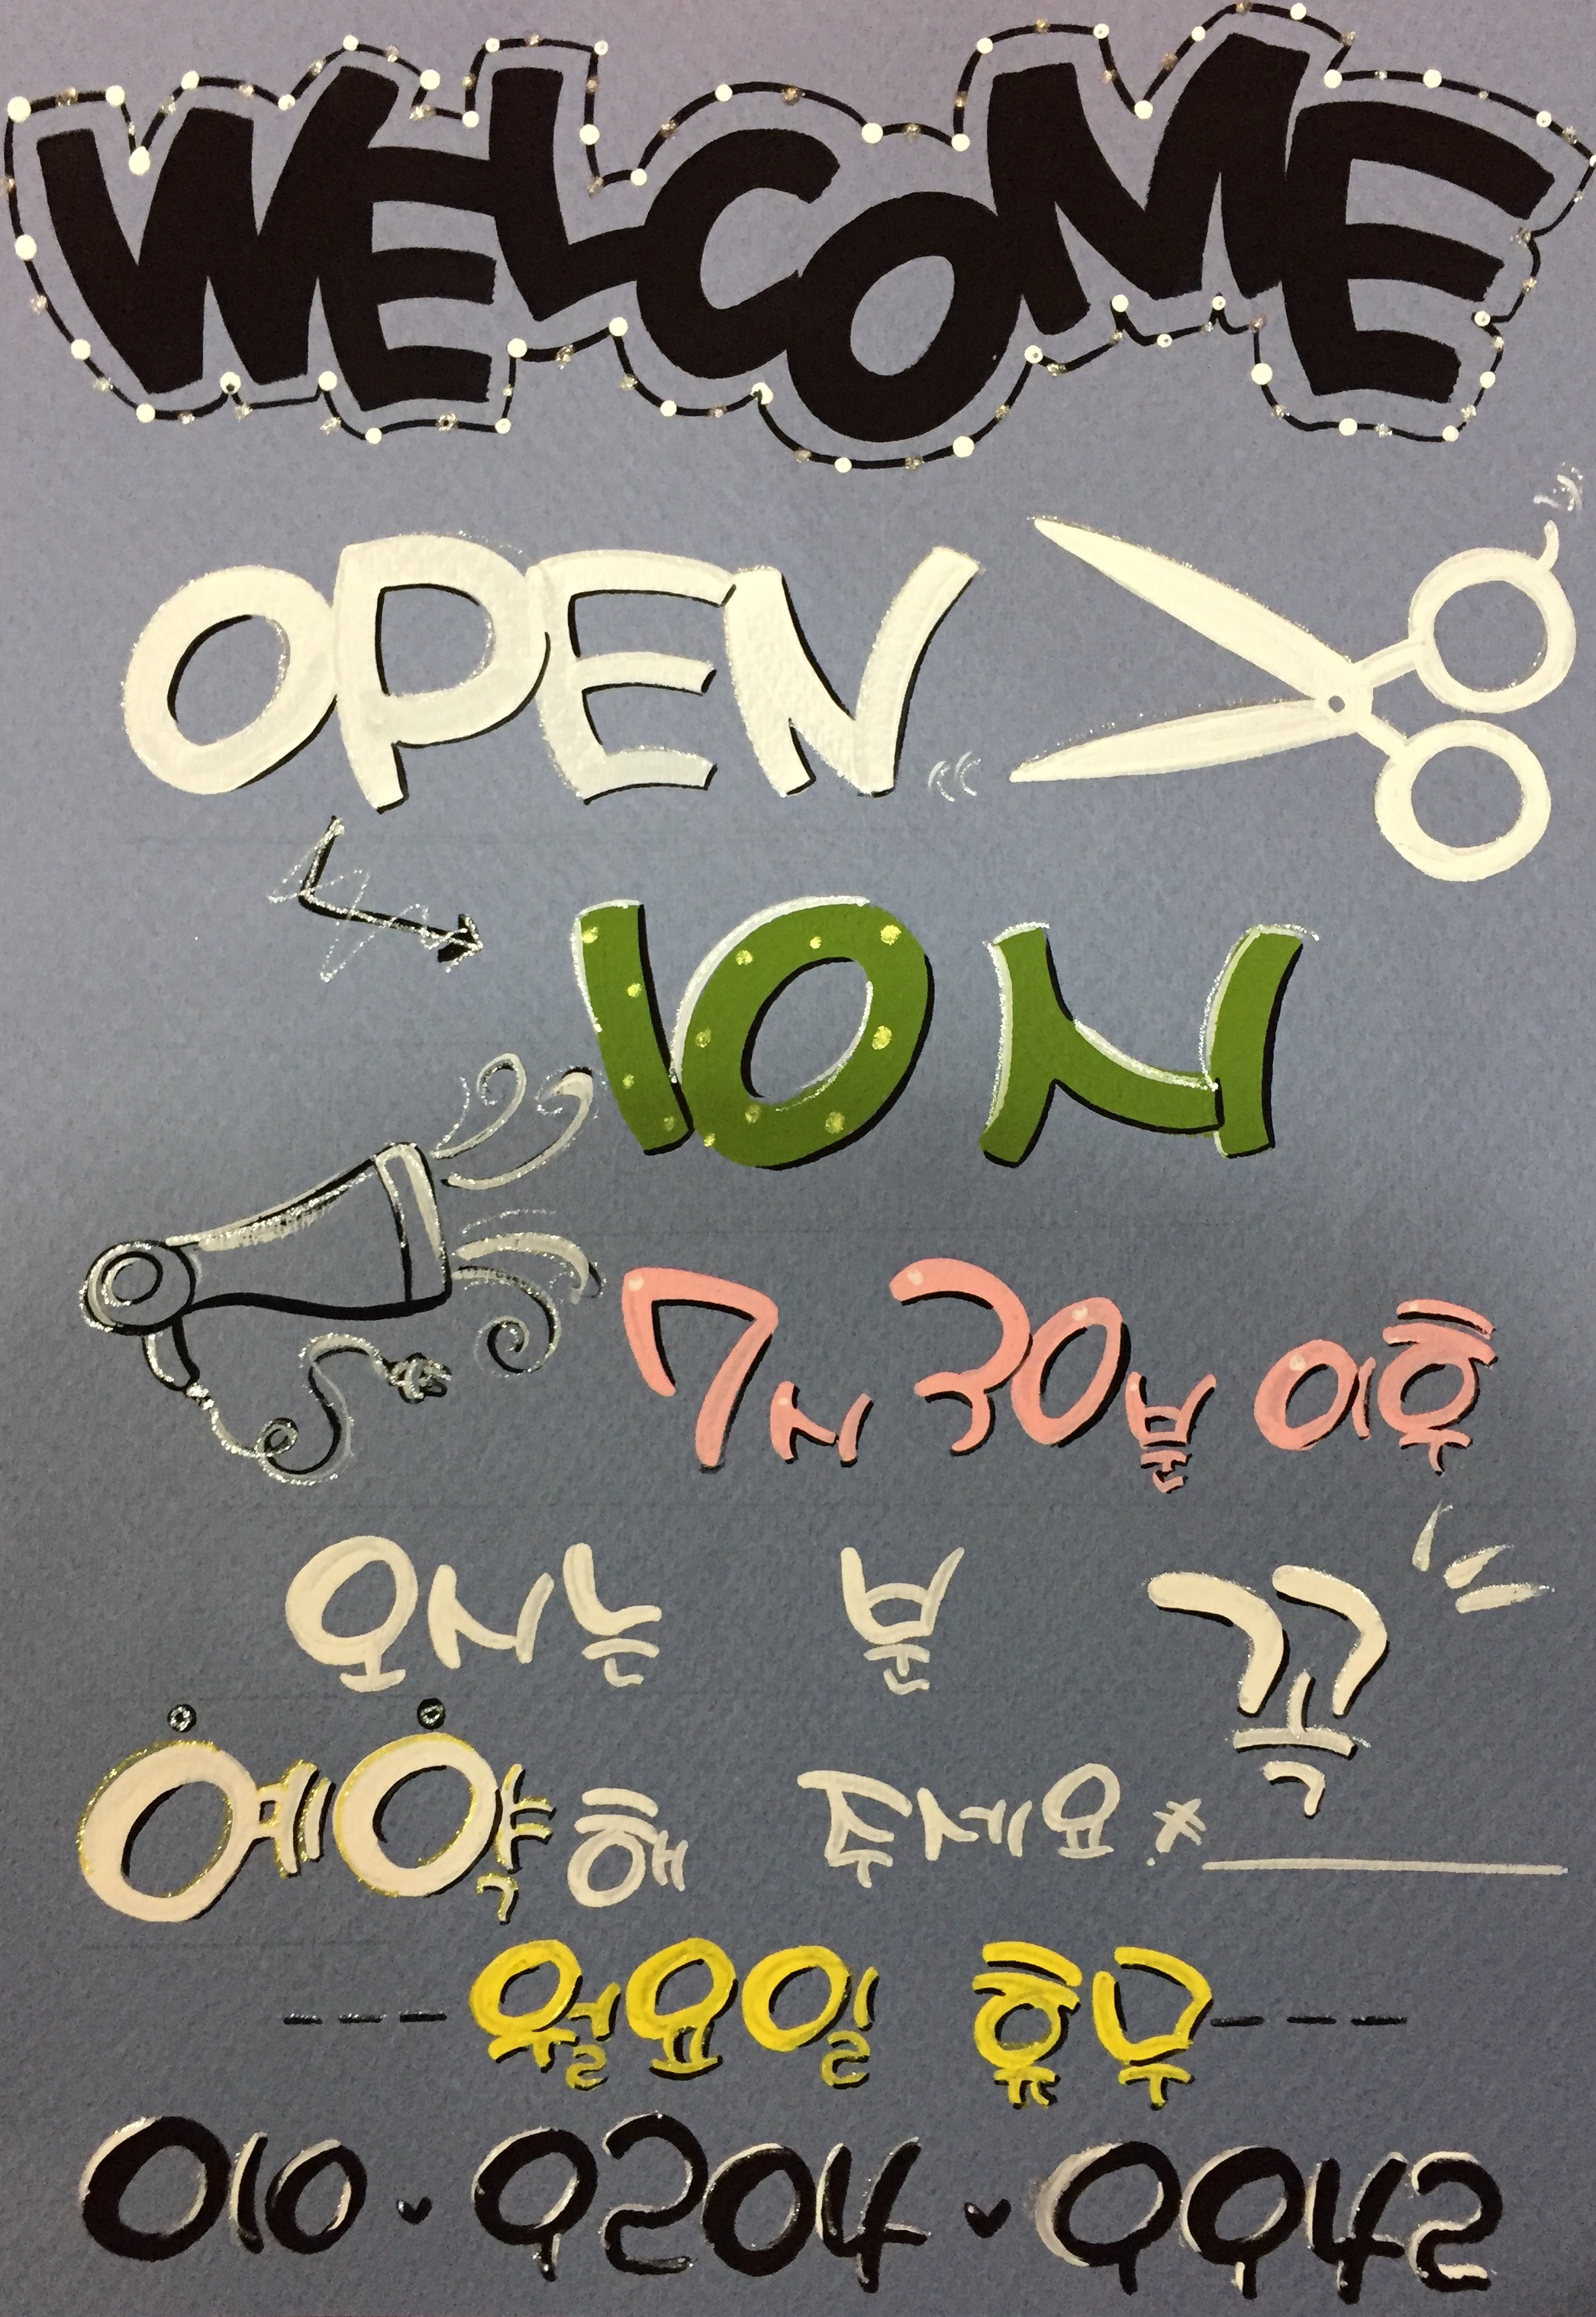 WELCOME
OPEN
10시
7시 30분 이후
오시는 분 꼭
예약해 주세요*
월요일 휴무
010 · 9204 · 9942